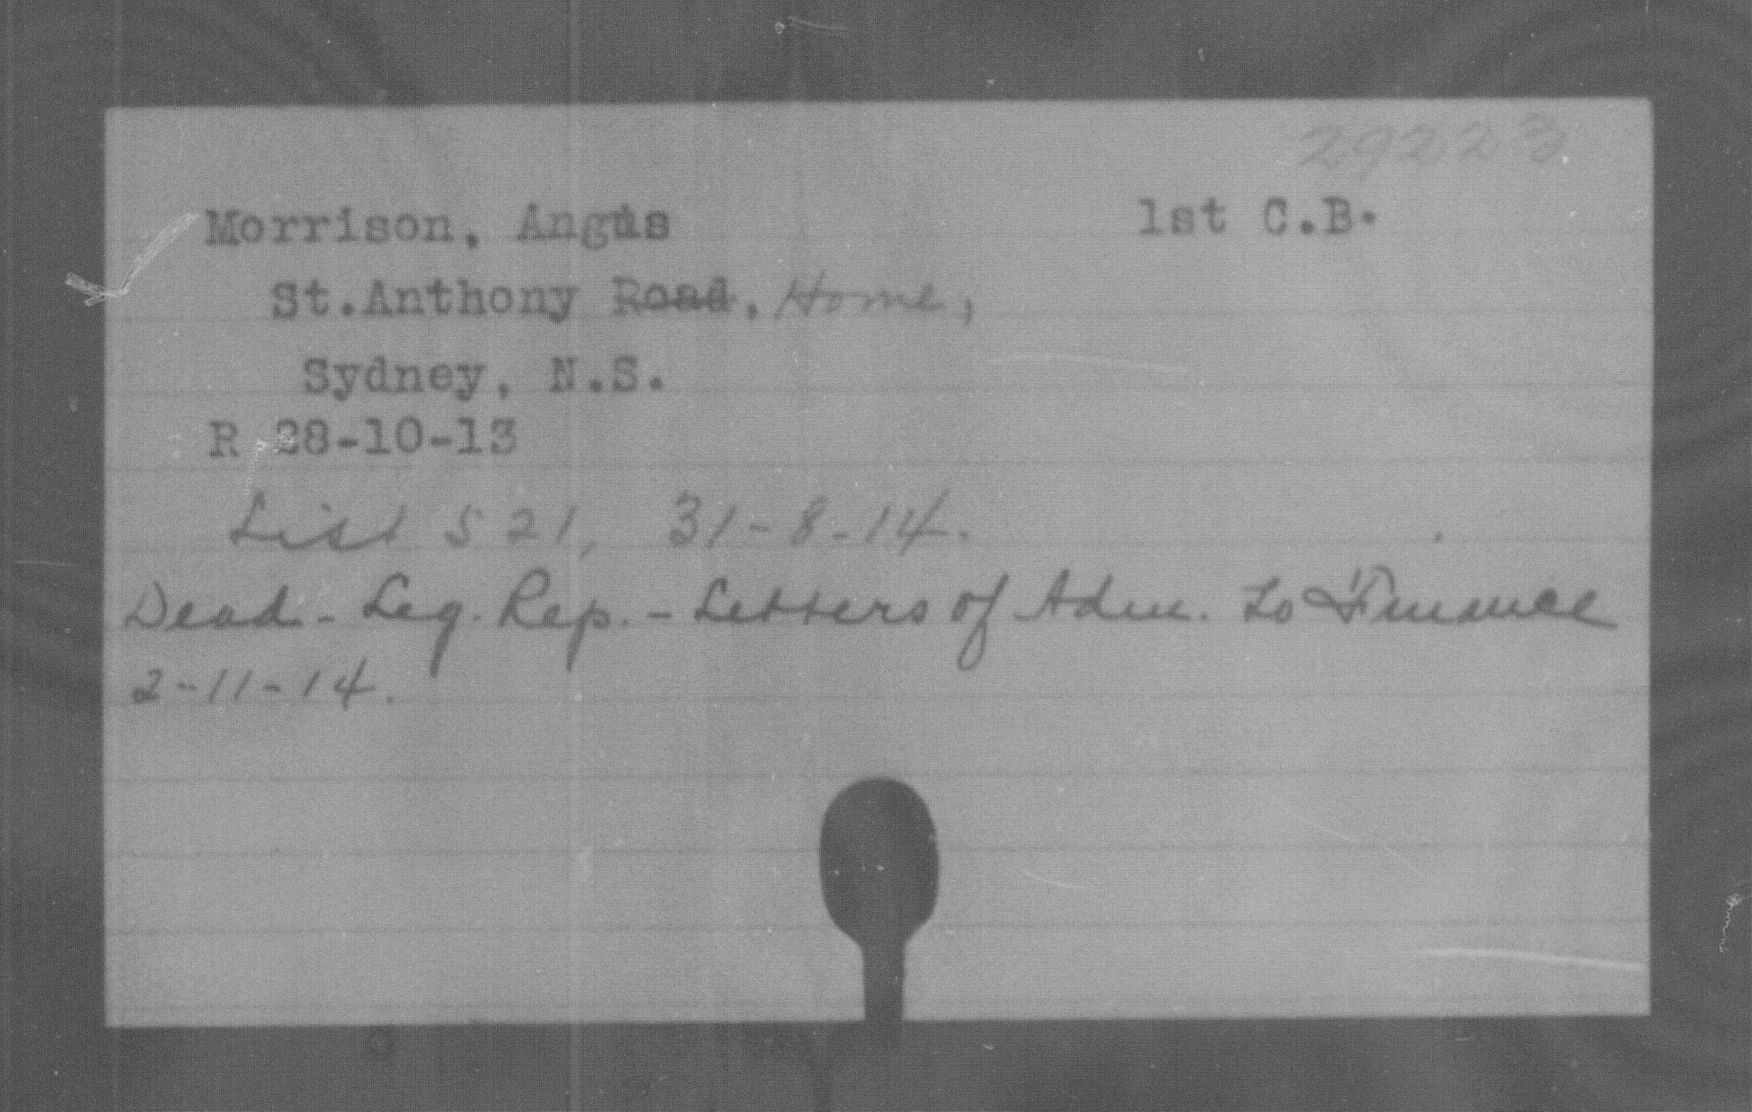 29223
Morrison, Angus 1st C.B.
St.Anthony Road, Home,
Sydney, N.S.
R 28-10-13
List 521, 31-8-14.
Dead - Leg. Rep. - Letters of Adm. to Finance
2-11-14.